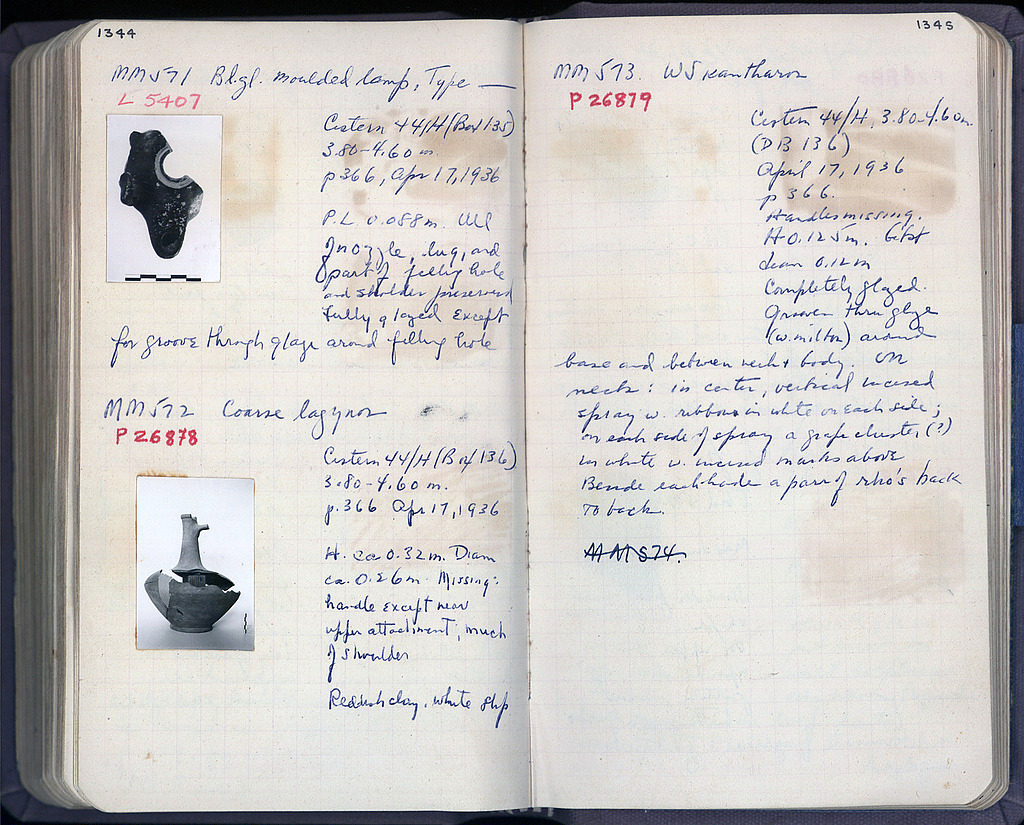 1344
MM571 Bl.gl. moulded lamp, Type —
L 5407
Cistern 44/H (Box 135)
3.80-4.60 m.
p 366, Apr 17, 1936
P.L 0.088m. All
of nozzle, lug, and
part of filling hole
and sholder preserved
fully glazed except
for groove through glaze around filling hole
MM572 Coarse lagynos
P 26878
Cistern 44/H (Box 136)
3.80-4.60 m.
p. 366 Apr 17, 1936
H. ca 0.32 m. Diam
ca. 0.26 m. Missing:
handle except near
upper attachment, much
of shoulder
Reddish clay, white slip
1345
MM573. WS kantharos
P 26879
Cistern 44/H, 3.80-4.60m.
(DB 136)
April 17, 1936
p 366.
Handles missing.
H 0.125m.
diam 0.12m
Completely glazed.
Grooves thru glaze
(w. miltos) around
base and between neck & body. On
neck: in center, vertical incised
spray w. ribbons in white on each side;
on each side of spray a grape cluster, (?)
in white w. incised marks above
Beside each handle a pair of rho's back
to back.
MM574.